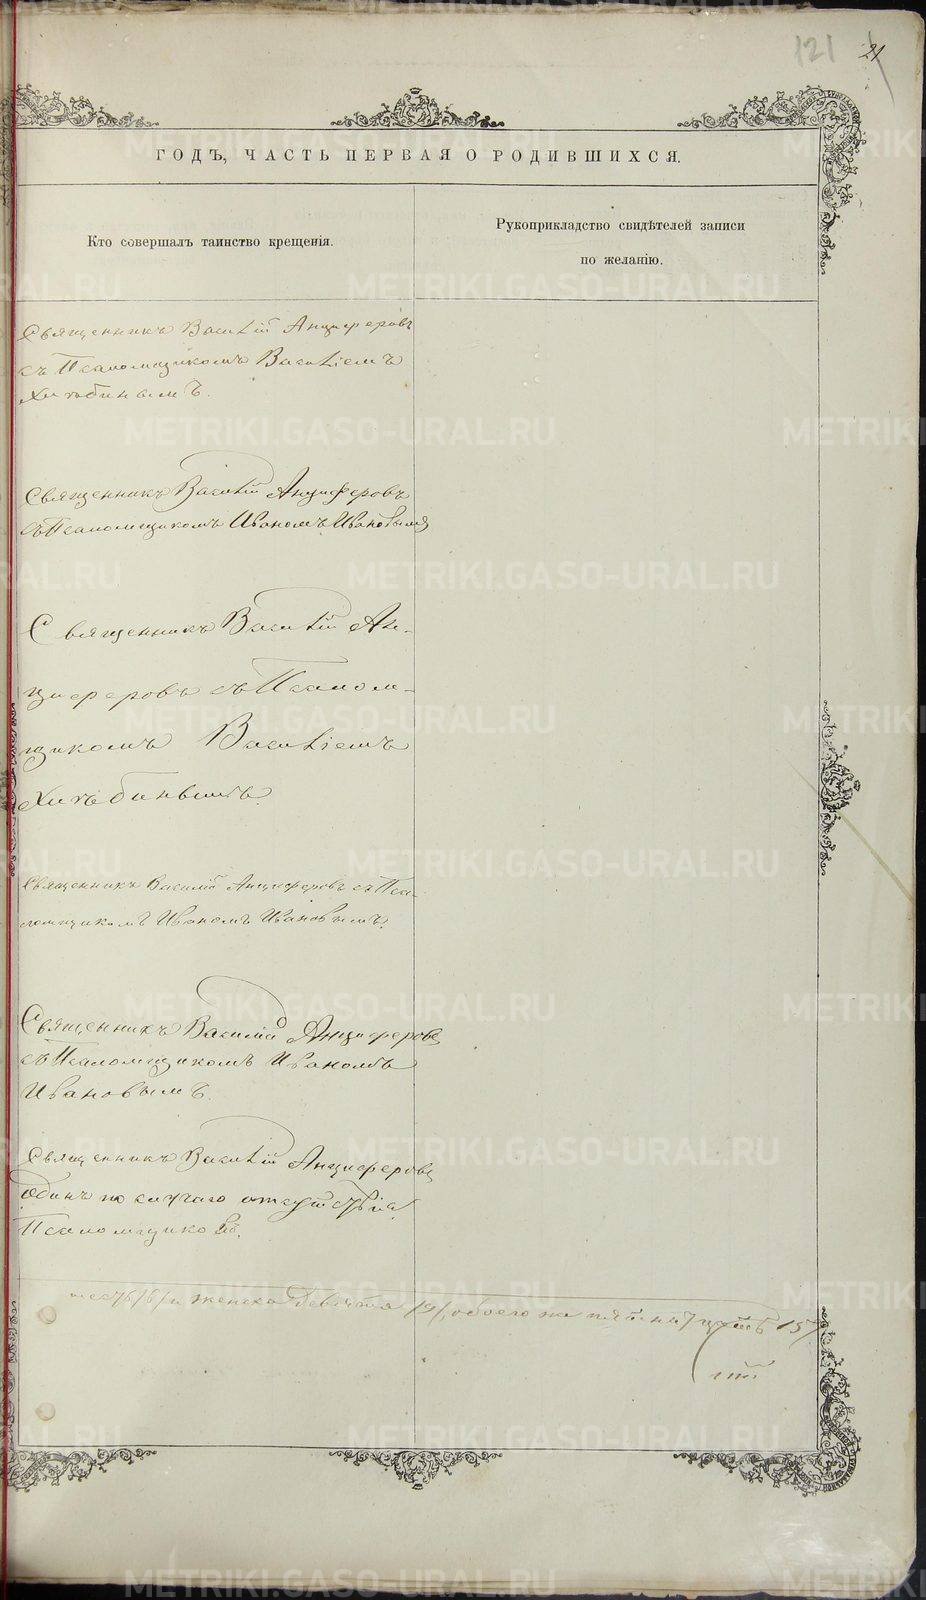 121 21
ГОДЪ, ЧАСТЬ ПЕРВАЯ О РОДИВШИХСЯ.
Кто совершалъ таинство крещенія.
Рукоприкладство свидѣтелей записи
по желанію.
Священникъ Василій Анциферовъ
съ Псаломщикомъ Василіемъ
Хлѣбинымъ.
Священникъ Василій Анциферовъ
съ Псаломщикомъ Иваномъ Ивановымъ
Священникъ Василій Ан-
циферовъ съ Псалом-
щикомъ Василіемъ
Хлѣбинымъ.
Священникъ Василій Анциферовъ съ Пса-
ломщикомъ Иваномъ Ивановымъ.
Священникъ Василій Анциферовъ
съ Псаломщикомъ Иваномъ
Ивановымъ.
Священникъ Василій Анциферовъ
Одинъ по случаю отсутствія
Псаломщиковъ.
шесть /6/ и женска девять /9/, обоего же пятнадцать 15
METRIKI.GASO-URAL.RU